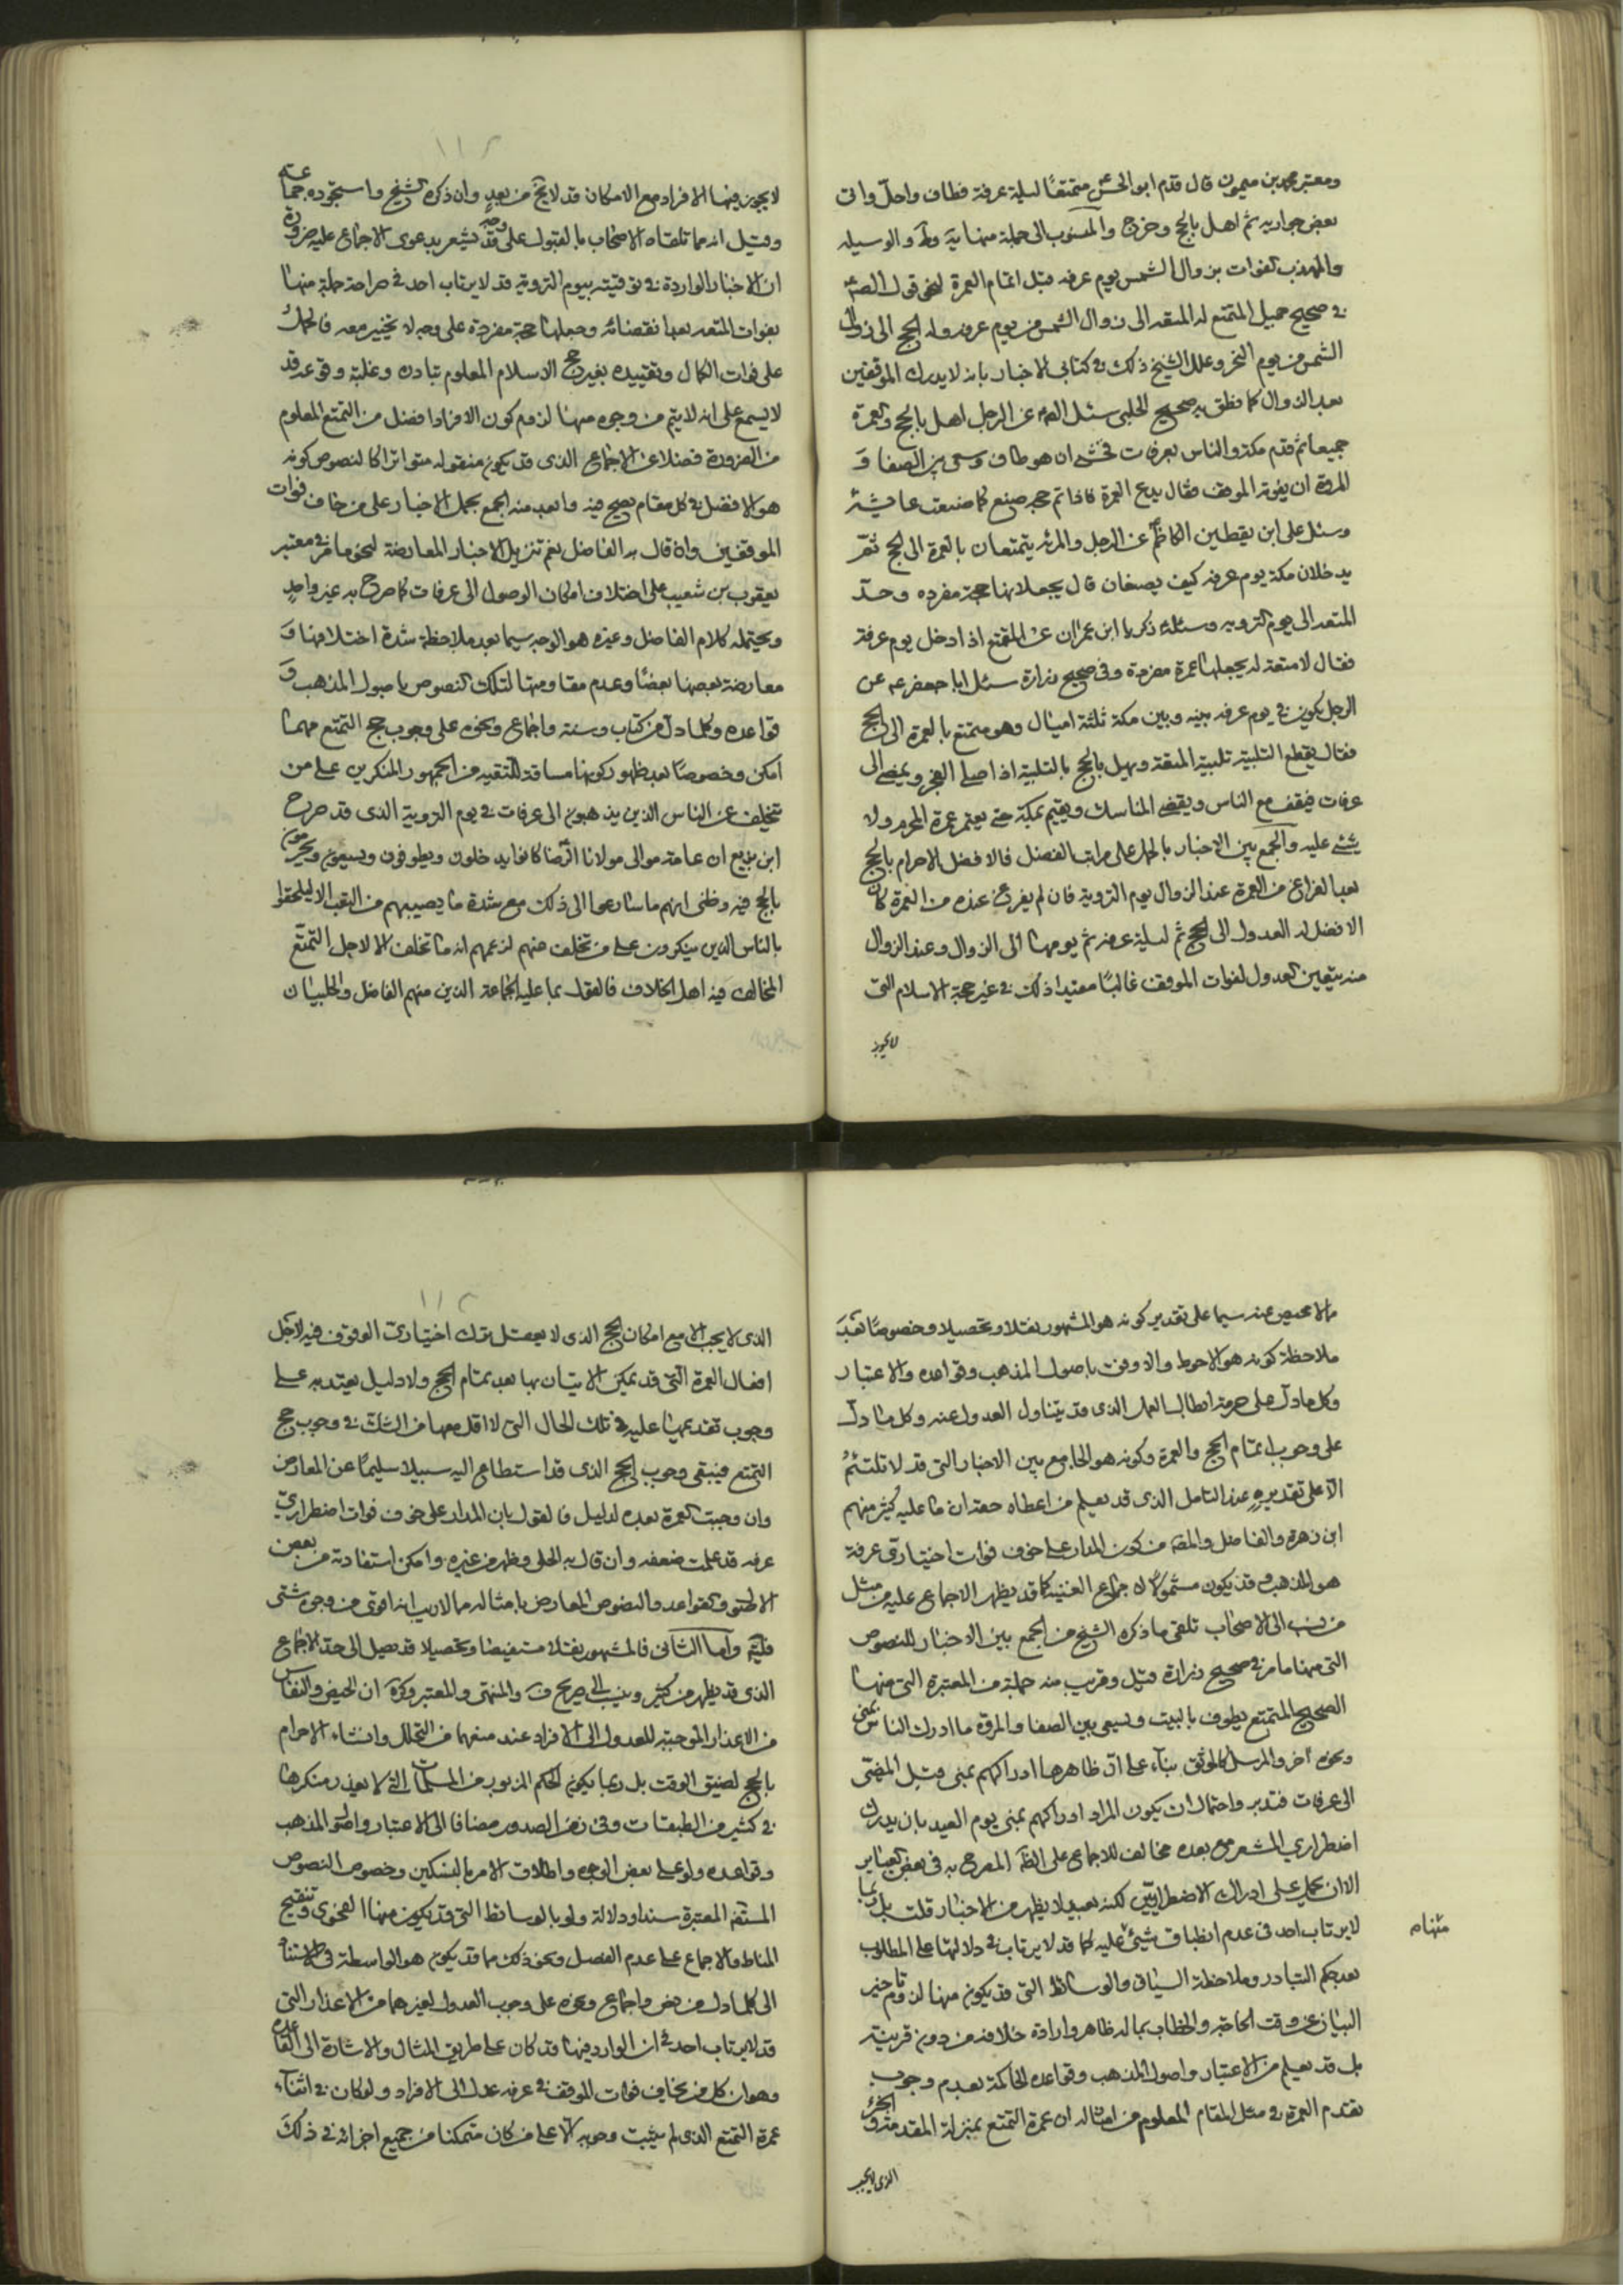 ومعتبر محمد بن ميمون قال قدم ابو الحسن متمتعًا ليلة عرفة فطاف واحل واتى
بعض جواريه ثم اهل بالحج وخرج والمنسوب الى جملة منها يه وط والوسيله
والمهذب الفوات بزوال الشمس يوم عرفه قبل اتمام العمرة لنحو قول الصم
في صحيح جميل المتمتع له المتعه الى زوال الشمس من يوم عرفه وله الحج الى زوال
الشمس من يوم النحر وعلل الشيخ ذلك في كتابى الاخبار بانه لا يدرك الموقفين
بعد الزوال كما نطق به صحيح الحلبى سئل الصم عن الرجل اهل بالحج والعمرة
جميعا ثم قدم مكة والناس بعرفات فخشى ان هو طاف وسعى بين الصفا و
المروة ان يفوته الموقف فقال يدع العمرة فاذا تم حجه صنع كما صنعت عايشة
وسئل على ابن يقطين الكاظم عن الرجل والمرئة يتمتعان بالعمرة الى الحج ثم
يدخلان مكة يوم عرفه كيف يصنعان قال يجعلانها حجة مفرده وحد
المتعه الى يوم الترويه وسئله زكريا ابن عمران عن المتمتع اذا دخل يوم عرفة
فقال لا متعة له يجعلها عمرة مفردة وفى صحيح زرارة سئل ابا جعفر عه عن
الرجل يكون في يوم عرفه بينه وبين مكة ثلثة اميال وهو متمتع بالعمرة الى الحج
فقال يقطع التلبية تلبية المتعة ويهل بالحج بالتلبية اذا صلى الفجر ويمضى الى
عرفات فيقف مع الناس ويقضى المناسك ويقيم بمكة حتى يعتمر عمرة المحرم ولا
شئ عليه والجمع بين الاخبار بالحمل على مراتب الفضل فالافضل الاحرام بالحج
بعد الفراغ من العمرة عند الزوال يوم التروية فان لم يفرغ عنده من العمرة كان
الافضل له العدول الى الحج ثم ليلة عرفه ثم يومها الى الزوال وعند الزوال
منه يتعين العدول لفوات الموقف غالبًا مقيدا ذلك في غير حجة الاسلام التى
لا يجوز
لا يجوز فيها الافراد مع الامكان قد لا يخ من بعد وان ذكره الشيخ واستجوده جماعته
وقيل انه مما تلقاه الاصحاب بالقبول على وجه قد يشعر بدعوى الاجماع عليه ضرورة
ان الاخبار الواردة في توقيته بيوم التروية قد لا يرتاب احد فى صراحة جملة منها
بفوات المتعه بعد انقضائه وجعلها حجة مفردة على وجه لا تخيير معه فالحمل
على فوات الكمال وتقييده بغير حج الاسلام المعلوم تبادره وغلبة وقوعه قد
لا يسمع على انه لا يتم من وجوه منها لزوم كون الافراد افضل من التمتع المعلوم
من الضرورة فضلا عن الاجماع الذى قد يكون منقوله متواترا كالنصوص كونه
هو الافضل في كل مقام يصح فيه وابعد منه الجمع بحمل الاخبار على من خاف فوات
الموقفين وان قال به الفاضل نعم تنزيل الاخبار المعارضة لنحو ما مر في معتبر
يعقوب بن شعيب على اختلاف امكان الوصول الى عرفات كما صرح به غير واحد
ويحتمله كلام الفاضل وغيره هو الوجه سيما بعد ملاحظة شدة اختلافها و
معارضة بعضها بعضًا وعدم مقاومتها لتلك النصوص باصول المذهب و
قواعده وكلما دل من كتاب وسنة واجماع ونحوه على وجوب حج التمتع مهما
امكن وخصوصًا بعد ظهور كونها مساقة للتقيه من الجمهور المنكرين على من
تتخلف عن الناس الذين يذهبون الى عرفات في يوم التروية الذى قد صرح
ابن بزيع ان عامة موالى مولانا الرضا كانوا يدخلون ويطوفون ويسعون ويحرمون
بالحج فيه وظنى انهم ما سارعوا الى ذلك مع شدة ما يصيبهم من التعب الا ليلحقوا
بالناس الذين ينكرون على من تخلف منهم لزعمهم انه ما تخلف الا لاجل التمتع
المخالف فيه اهل الخلاف فالقول بما عليه الجماعة الذين منهم الفاضل والحلبيان
مالا محيص عنه سيما على تقدير كونه هو المشهور نقلا وتحصيلا وخصوصًا بعد
ملاحظة كونه هو الاحوط والاوفق باصول المذهب وقواعده والاعتبار
وكل ما دل على حرمة ابطال العمل الذى قد يتناول العدول عنه وكل ما دل
على وجوب اتمام الحج والعمرة وكونه هو الجامع بين الاخبار التى قد لا تلتئم
الا على تقديره عند التامل الذى قد يعلم من اعطاه حقه ان ما عليه كثير منهم
ابن زهرة والفاضل والمصه من كون المدار على خوف فوات اختيارى عرفة
هو المذهب وقد يكون مشمولا لاجماع الغنية كما قد يظهر الاجماع عليه من مثل
من نسب الى الاصحاب تلقى ما ذكره الشيخ من الجمع بين الاخبار للنصوص
التى منها ما مر في صحيح زرارة قيل وقريب منه جملة من المعتبرة التى منها
الصحيح المتمتع يطوف بالبيت ويسعى بين الصفا والمروة ما ادرك الناس بمنى
ونحوه آخر والمرسل كالموثق بناء على ان ظاهرها ادراكهم بمنى قبل المضى
الى عرفات فتدبر واحتمال ان يكون المراد ادراكهم بمنى يوم العيد بان يدرك
اضطراري المشعر بعده مخالف للاجماع على الظه المصرح به فى بعض العباير
الا ان يحمل على ادراك الاضطراريين لكنه بعيد لا يظهر من الاخبار قلت بل ربما
لا يرتاب احد فى عدم انطباق شيئ عليه كما قد لا يرتاب في دلالتها على المطلوب
منها م
بعد حكم التبادر وملاحظة السياق والوسائط التى قد يكون منها لزوم تاخير
البيان عن وقت الحاجة والخطاب بما له ظاهر وارادة خلافه من دون قرينة
بل قد يعلم من الاعتبار واصول المذهب وقواعده الحاكمة بعدم وجوب
تقدم العمرة في مثل المقام المعلوم من امثاله ان عمرة التمتع بمنزلة المقدمة و الجزء
الذى لا يجب
الذى لا يجب الا مع امكان الحج الذى لا يعقل ترك اختيارى الوقوف فيه لاجل
افعال العمرة التى قد يمكن الاتيان بها بعد تمام الحج ولا دليل يعتد به على
وجوب تقديمها عليه في تلك الحال التى لا اقل معها من الشك في وجوب حج
التمتع فيبقى وجوب الحج الذى قد استطاع اليه سبيلا سليما عن المعارض
وان وجبت العمرة بعده لدليل فالقول بان المدار على خوف فوات اضطراري
عرفه قد علمت ضعفه وان قال به الحلى وظهر من غيره وامكن استفادته من بعض
الاصول والقواعد والنصوص المعارض بامثاله مما لا ريب انه اقوى من وجوه شتى
فليتم واما الثانى فالمشهور نقلا مستفيضا وتحصيلا قد يصل الى حد الاجماع
الذى قد يظهر من كثير وينسب الى صريح ف والمنتهى والمعتبر وكره ان الحيض والنفاس
من الاعذار الموجبة للعدول الى الافراد عند منعهما من التحلل وانشاء الاحرام
بالحج لضيق الوقت بل ربما يكون الحكم المزبور من المسلمات التى لا يعذر منكرها
في كثير من الطبقات وفى زمن الصدور مضافا الى الاعتبار واصول المذهب
وقواعده ولو على بعض الوجوه واطلاق الامر بالنسكين وخصوص النصوص
المستفيضه المعتبرة سندا ودلالة ولو بالوسائط التى قد يكون منها الفحوى وتنقيح
المناط والاجماع على عدم الفصل ونحو ذلك مما قد يكون هو الواسطة فى الاستناد
الى كلما دل من نص واجماع ونحوه على وجوب العدول لغيرهما من الاعذار التى
قد لا يرتاب احد في ان الوارد فيها قد كان على طريق المثال والاشارة الى القاعدة
وهو ان كل من يخاف فوات الموقف في عرفه عدل الى الافراد ولو كان في اثناء
عمرة التمتع الذى لم يثبت وجوبه الا على من كان متمكنا من جميع اجزائه في ذلك